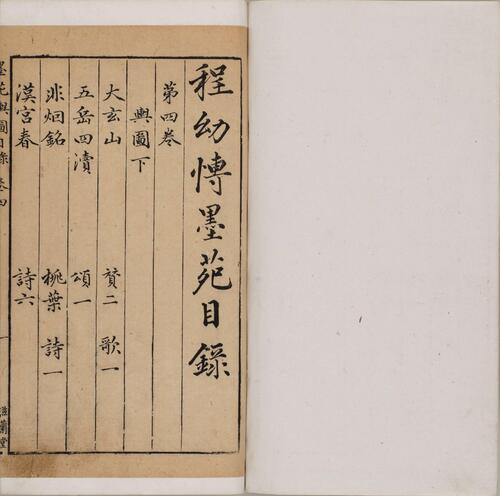 程幼博墨苑目錄
第四卷
輿圖下
大玄山 贊二 歌一
五岳四瀆 頌一
非烟銘 桃葉 詩一
漢宮春 詩六
墨苑輿圖目錄 卷四 一 滋蘭堂